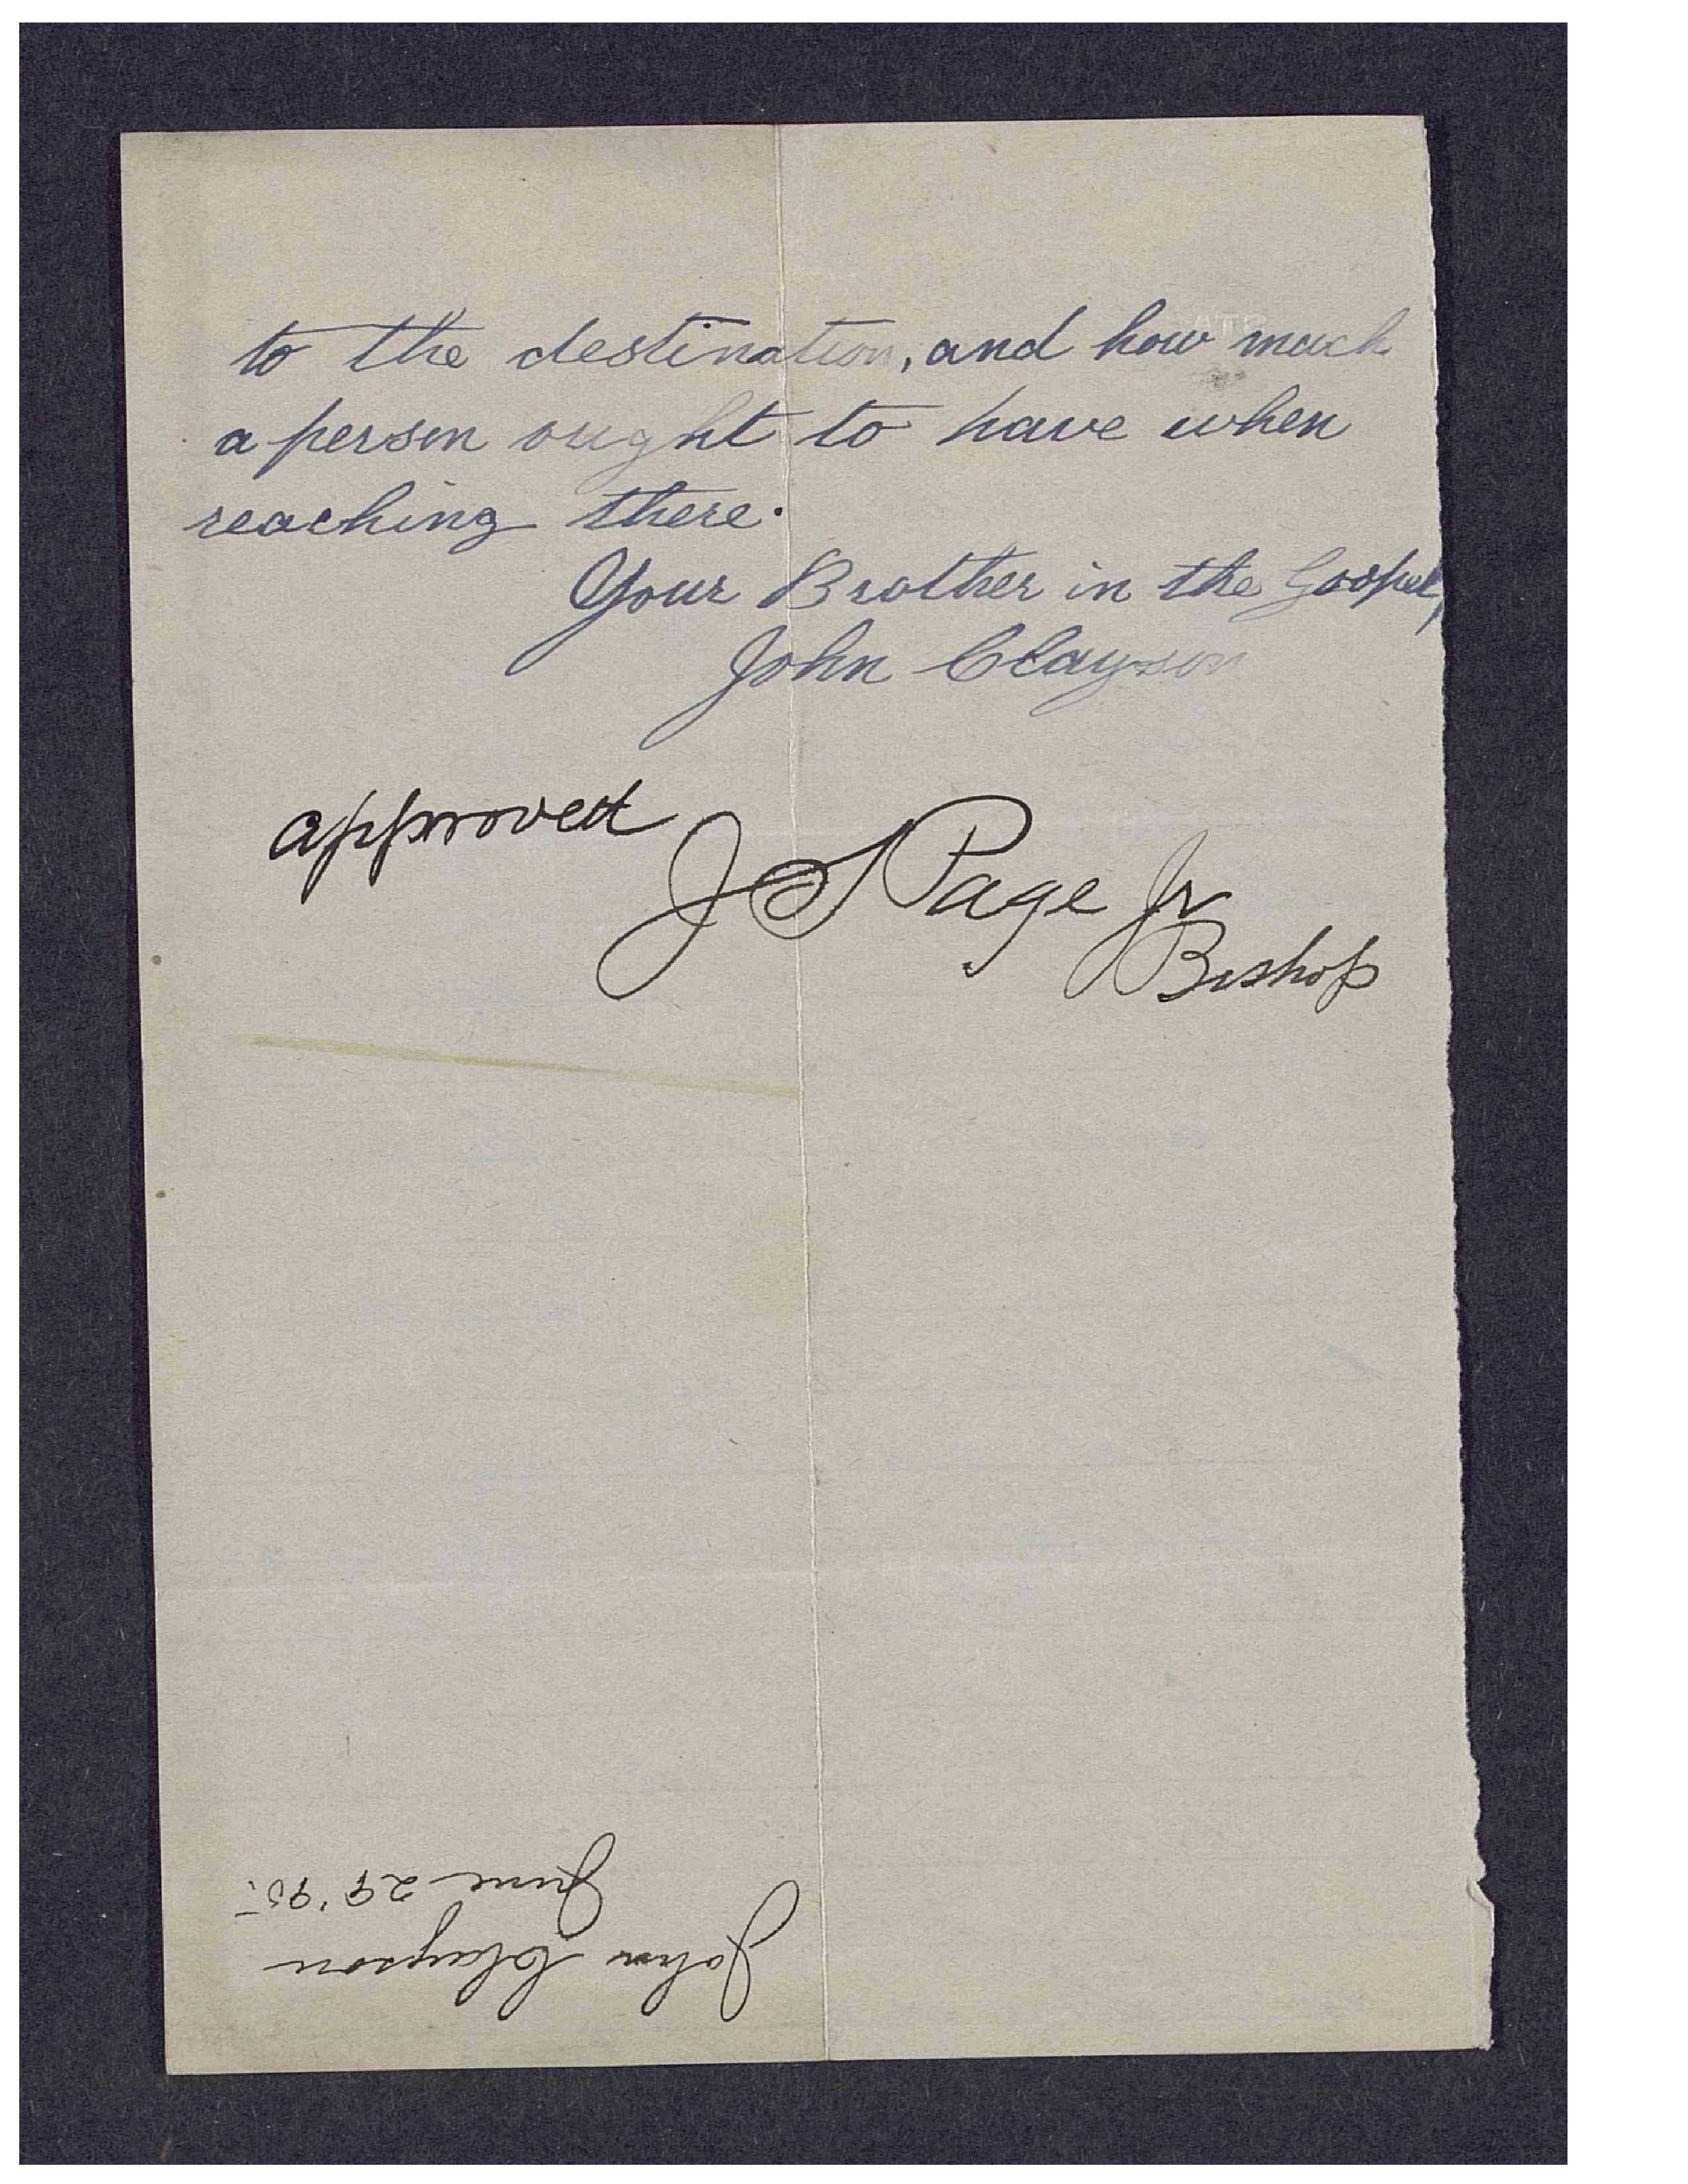 to the destination, and how much
a person ought to have when
reaching there.
Your Brother in the Gospel,
John Clayson
approved
J S Page Jr
Bishop
John Clayson
June 29 '95.